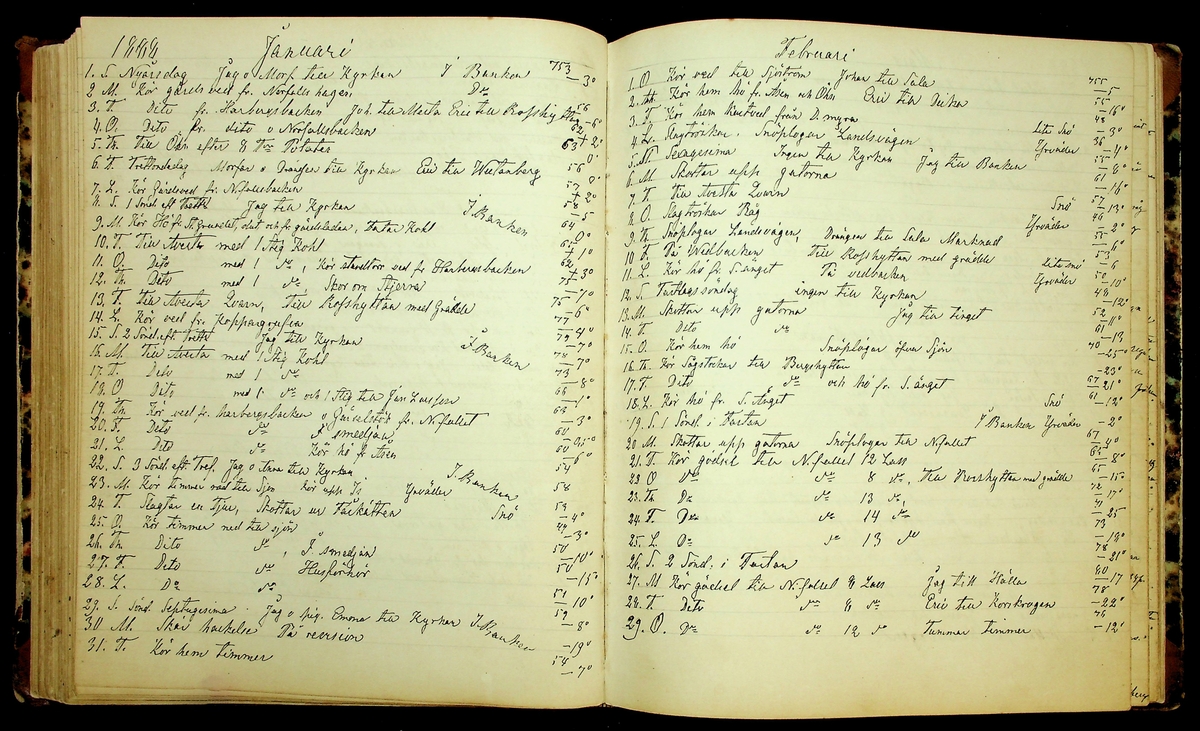 1888 Januari
1. S. Nyårsdag Jag o Morf till Kyrkan I Banken 753 – 3°
2 M. Kör gärdsved fr. Norfalls hagen D:o
3. T. Dito fr. Harbergsbacken Joh. till Mesta Eric till Rofshyttan 56 – 6°
4. O. Dito fr. dito o Norfallsbacken 62 + 2°
5. Th. Till Öhn efter 8 T:r Potater 63 0°
6. F. Trettondedag Morfar o Drängen till Kyrkan Eric till 56 0°
7. L. Kör Gärdsved fr. N.fallsbacken 57 + 2°
8. S. 1 Sönd. eft Trett Jag till Kyrkan I Banken 58 – 5
9. M. Kör Hö fr. gärdesladan, Kohl 64 0°
10. T. Till Avesta med 1 Stig Kohl 65 – 1°
11. O. Dito med 1 d:o, Kör ved fr Harbergsbacken 62 + 3°
12. Th. Dito med 1 d:o Skor om Stjerna 75 – 7°
13. F. Till Avesta Qvarn, till Rofshyttan med Grädde 75 – 6°
14. L. Kör ved fr. Koppargrufen 77
15. S. 2 Sönd. eft. Trett Jag till Kyrkan I Banken 79 – 4°
16. M. Till Avesta med 1 Stig Kohl 78 – 7°
17. T. Dito med 1 d:o 73 – 7°
18. O Dito med 1 d:o och 1 Stig till Jan Larssen 66 – 8°
19. Th. Kör ved fr. Harbergsbacken o fr. N.fallet 63 – 1°
20. F. Dito d:o I smedjan 61 – 3°
21. L. Dito d:o Kör hö fr Åsen 60
22. S. 3 Sönd. eft Tret. Jag o Anna till Kyrkan I Banken 54 – 6°
23. M. Kör timmer ned till Sjön Kör upp Is Yrväder 58
24. T. Slagtar en Tjur, Skottar ur Fårkätten Snö 53 – 4°
25. O. Kör timmer ned till sjön 49 – 3°
26. Th. Dito d:o, I smedjan 50 – 10°
27. F. Dito d:o Husförhör 50 – 15°
28. L. D:o d:o 51 – 10°
29. S. Sönd. Septuagesima Jag o pig. Emma till Kyrkan I Banken 59 – 8°
30 M. Skär hackelse På revision – 19°
31. T. Kör hem timmer 54 – 7°
Februari
1. O. Kör ved till Sjöstrom Johan till Sala 755 – 5
2. Th. Kör hem hö fr. Åsen och Öhn Eric till 55 – 16°
3. F. Kör hem från D. myra 48 – 3°
4. L. Slagtröskar. Snöplogar Landsvägen lite Snö 36 – 4°
5. S. Sexagesima Ingen till Kyrkan Jag till Banken Yrväder 55 – 8°
6. M. Skottar upp gatorna 61 – 16°
7. T. Till Avesta Qvarn 57 – 13°
8. O. Slagtröskar Råg Snö 46 – 2°
9. Th. Snöplogar Landsvägen, Drängen till Sala Marknad Yrväder 55 – 6°
10 F. På Wedbacken Till Rofshyttan med grädde 53 – 6
11. L. Kör hö fr. S. änget På vedbacken lite snö 50 – 10°
12. S. Fastlagssöndag ingen till Kyrkan Yrväder 48 – 12°
13. M. Skottar upp gatorna Jag till tinget 52 – 11°
14. T. Dito d:o 61 – 13
15. O. Kör hem hö Snöplogar öfver Sjön 70 – 25°
16. Th. Kör Sågstockar till Bergshyttan – 23°
17. F. Dito d:o och hö fr. S. änget 67 – 21°
18. L. Kör hö fr. S. Änget 61 – 12°
19. S. 1 Sönd. i Fastan Snö
I Banken Yrväder – 2°
20 M. Skottar upp gatorna Snöplogar till N.fallet 67 – 4°
21. T. Kör gödsel till N.fallet 12 Lass 65 – 8°
22 O D:o d:o 8 d:o, till Rofshyttan med grädde 65 – 15°
23. Th. D:o d:o 13 d:o, 72 – 17°
24. F. D:o d:o 14 d:o 71 – 25
25. L. D:o d:o 13 d:o 73 – 19°
26. S. 2 Sönd. i Fastan 78 – 21°
27. M. Kör gödsel till N.fallet 8 Lass Jag till Hälla 80 – 17
28. T. Dito d:o 8 d:o Eric till Korskrogen 78 – 22°
29. O. D:o d:o 12 d:o Tummar timmer 76 – 12°